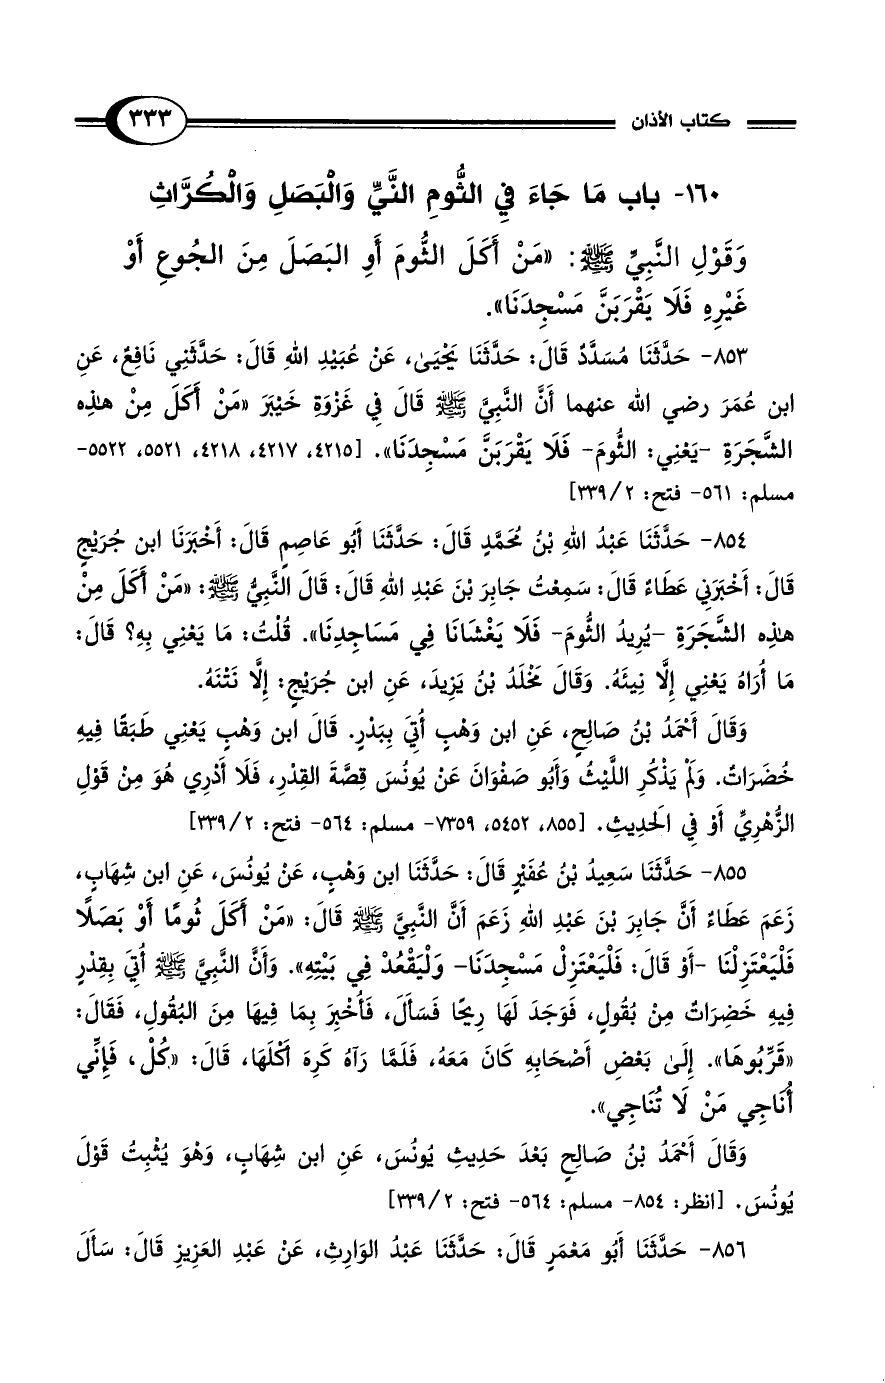 كتاب الأذان ٣٣٣
١٦٠- باب مَا جَاءَ فِي الثُّومِ النَّيِّ وَالْبَصَلِ وَالْكُرَّاثِ
وَقَوْلِ النَّبِيِّ ﷺ: «مَنْ أَكَلَ الثُّومَ أَوِ البَصَلَ مِنَ الجُوعِ أَوْ
غَيْرِهِ فَلَا يَقْرَبَنَّ مَسْجِدَنَا».
٨٥٣- حَدَّثَنَا مُسَدَّدٌ قَالَ: حَدَّثَنَا يَحْيَىٰ، عَنْ عُبَيْدِ اللهِ قَالَ: حَدَّثَنِي نَافِعٌ، عَنِ
ابن عُمَرَ رضي الله عنهما أَنَّ النَّبِيَّ ﷺ قَالَ فِي غَزْوَةِ خَيْبَرَ «مَنْ أَكَلَ مِنْ هٰذِه
الشَّجَرَةِ -يَعْنِي: الثُّومَ- فَلَا يَقْرَبَنَّ مَسْجِدَنَا». [٤٢١٥، ٤٢١٧، ٤٢١٨، ٥٥٢١، ٥٥٢٢-
مسلم: ٥٦١- فتح: ٢/ ٣٣٩]
٨٥٤- حَدَّثَنَا عَبْدُ اللهِ بْنُ مُحَمَّدٍ قَالَ: حَدَّثَنَا أَبُو عَاصِمٍ قَالَ: أَخْبَرَنَا ابن جُرَيْجٍ
قَالَ: أَخْبَرَنِي عَطَاءٌ قَالَ: سَمِعْتُ جَابِرَ بْنَ عَبْدِ اللهِ قَالَ: قَالَ النَّبِيُّ ﷺ: «مَنْ أَكَلَ مِنْ
هٰذِه الشَّجَرَةِ -يُرِيدُ الثُّومَ- فَلَا يَغْشَانَا فِي مَسَاجِدِنَا». قُلْتُ: مَا يَعْنِي بِهِ؟ قَالَ:
مَا أُرَاهُ يَعْنِي إِلَّا نِيئَهُ. وَقَالَ مَخْلَدُ بْنُ يَزِيدَ، عَنِ ابن جُرَيْجٍ: إِلَّا نَتْنَهُ.
وَقَالَ أَحْمَدُ بْنُ صَالِحٍ، عَنِ ابن وَهْبٍ أُتِيَ بِبَدْرٍ. قَالَ ابن وَهْبٍ يَعْنِي طَبَقًا فِيهِ
خُضَرَاتٌ. وَلَمْ يَذْكُرِ اللَّيْثُ وَأَبُو صَفْوَانَ عَنْ يُونُسَ قِصَّةَ القِدْرِ، فَلَا أَدْرِي هُوَ مِنْ قَوْلِ
الزُّهْرِيِّ أَوْ فِي الَحدِيثِ. [٨٥٥، ٥٤٥٢، ٧٣٥٩- مسلم: ٥٦٤- فتح: ٢/ ٣٣٩]
٨٥٥- حَدَّثَنَا سَعِيدُ بْنُ عُفَيْرٍ قَالَ: حَدَّثَنَا ابن وَهْبٍ، عَنْ يُونُسَ، عَنِ ابن شِهَابٍ،
زَعَمَ عَطَاءٌ أَنَّ جَابِرَ بْنَ عَبْدِ اللهِ زَعَمَ أَنَّ النَّبِيَّ ﷺ قَالَ: «مَنْ أَكَلَ ثُومًا أَوْ بَصَلًا
فَلْيَعْتَزِلْنَا -أَوْ قَالَ: فَلْيَعْتَزِلْ مَسْجِدَنَا- وَلْيَقْعُدْ فِي بَيْتِهِ». وَأَنَّ النَّبِيَّ ﷺ أُتِيَ بِقِدْرٍ
فِيهِ خَضِرَاتٌ مِنْ بُقُولٍ، فَوَجَدَ لَهَا رِيحًا فَسَأَلَ، فَأُخْبِرَ بِمَا فِيهَا مِنَ البُقُولِ، فَقَالَ:
«قَرِّبُوهَا». إِلَىٰ بَعْضِ أَصْحَابِهِ كَانَ مَعَهُ، فَلَمَّا رَآهُ كَرِهَ أَكْلَهَا، قَالَ: «كُلْ، فَإِنِّي
أُنَاجِي مَنْ لَا تُنَاجِي».
وَقَالَ أَحْمَدُ بْنُ صَالِحٍ بَعْدَ حَدِيثِ يُونُسَ، عَنِ ابن شِهَابٍ، وَهْوَ يُثْبِتُ قَوْلَ
يُونُسَ. [انظر: ٨٥٤- مسلم: ٥٦٤- فتح: ٢/ ٣٣٩]
٨٥٦- حَدَّثَنَا أَبُو مَعْمَرٍ قَالَ: حَدَّثَنَا عَبْدُ الوَارِثِ، عَنْ عَبْدِ العَزِيزِ قَالَ: سَأَلَ